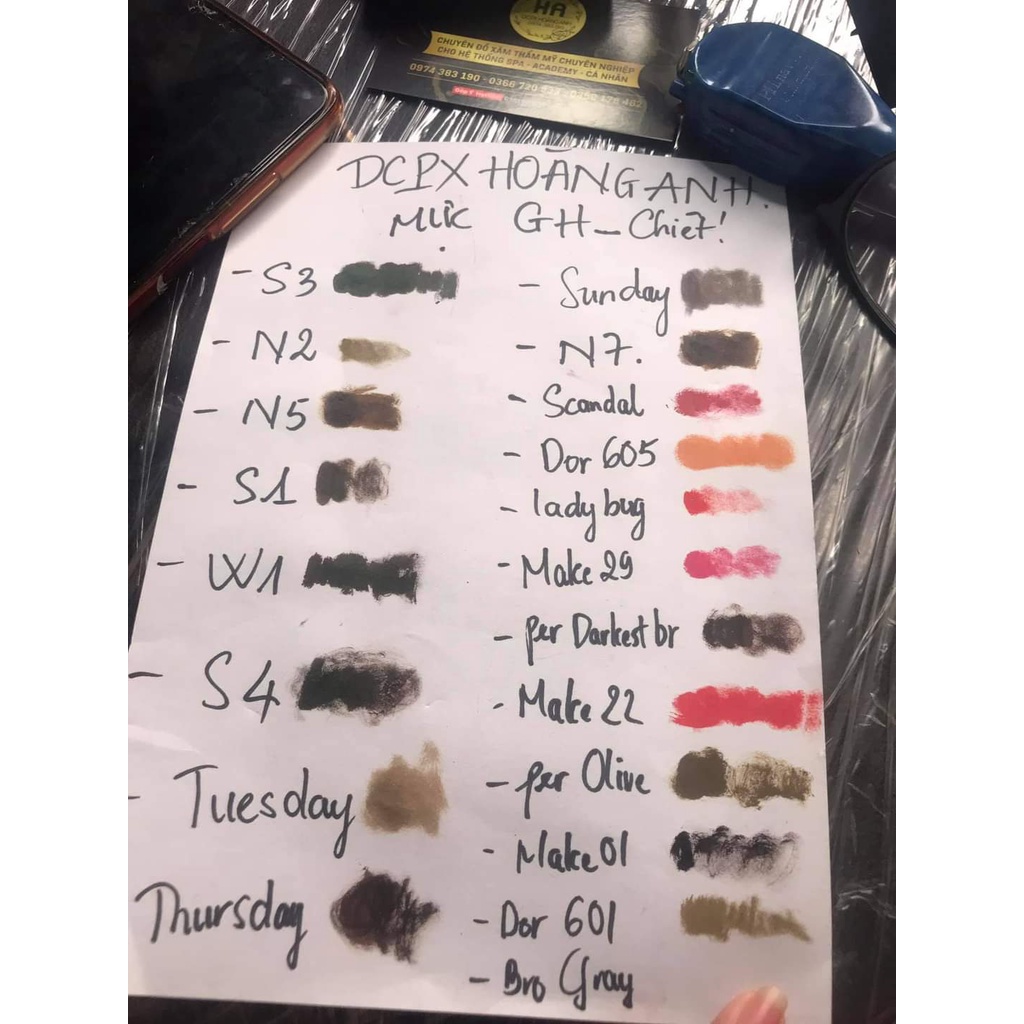 HA
CHUYÊN ĐỒ XĂM THẨM MỸ CHUYÊN NGHIỆP
CHO HỆ THỐNG SPA - ACADEMY - CÁ NHÂN
0974 383 190 - 0366
DCPX HOÀNG ANH.
MỰC GH - Chiết!
- S3
- N2
- N5
- S1
- W1
- S4
- Tuesday
Thursday
- Sunday
- N7.
- Scandal
- Dor 605
- lady bug
- Make 29
- per Darkest br
- Make 22
- per Olive
- Make 01
- Dor 601
- Bro Gray